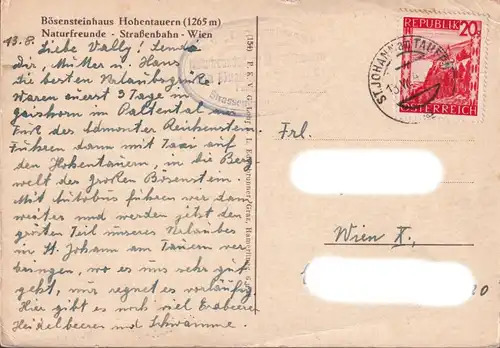 Bösensteinhaus Hohentauern (1265 m)
Naturfreunde - Straßenbahn - Wien
13.8. Liebe Vally! Sende
Dir, Mutter u. Hans
die besten Urlaubsgrüße
waren zuerst 3 Tage in
Gaishorn im Paltental am
Fuße des Admonter Reichenstein.
Fuhren dann mit Taxi auf
den Hohentauern, in die Berg-
welt des Großen Bösenstein.
Mit Autobus fuhren wir dann
weiter und werden jetzt den
größten Teil unseres Urlaubes
in St. Johann am Tauern ver-
bringen, wo es uns sehr gut
geht, nur regnet es vorläufig.
Hier gibt es noch viel Erdbeeren
Heidelbeeren und Schwämme.
REPUBLIK
20
ÖSTERREICH
ST. JOHANN
Frl.
Wien X.,